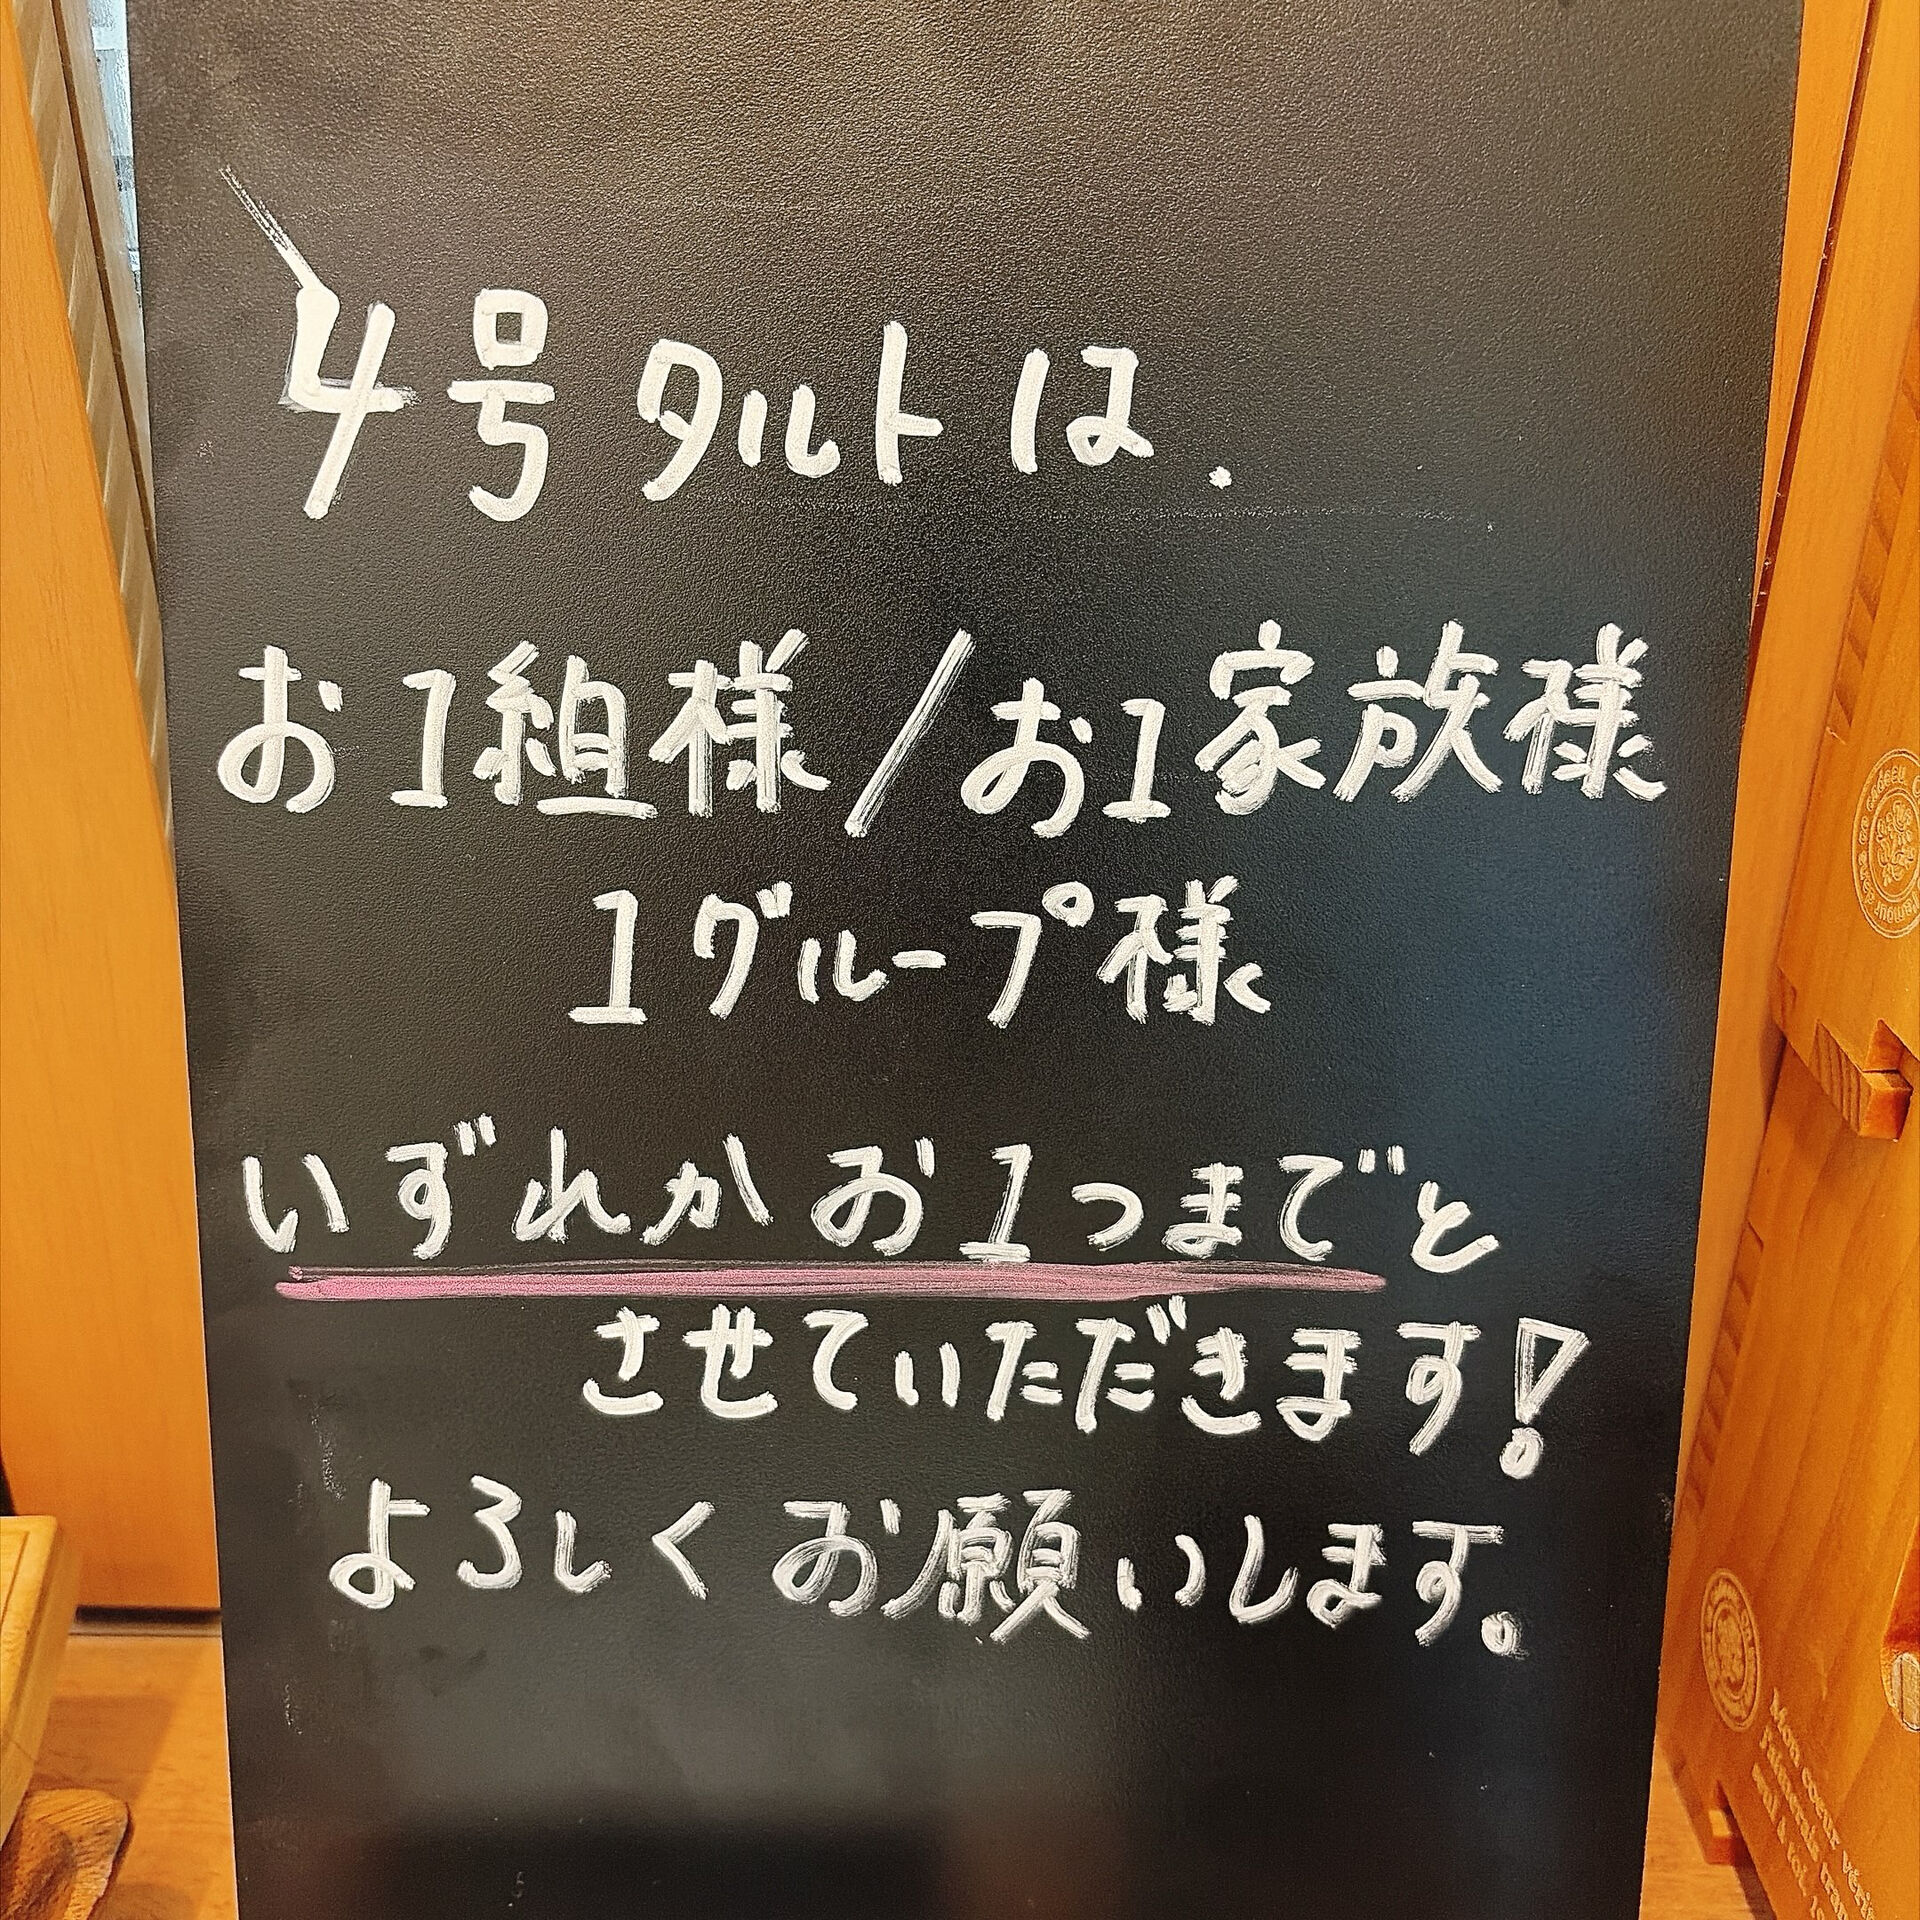 4号タルトは.
お1組様/お1家族様
1グループ様
いずれかお1つまでと
させていただきます!
よろしくお願いします。